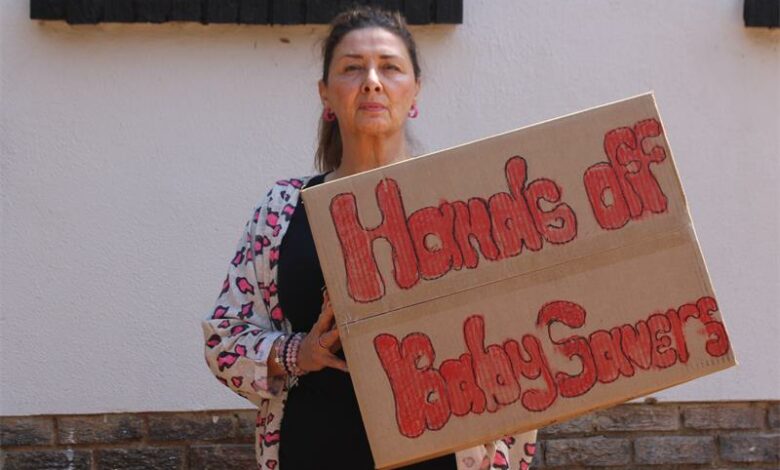 Hands off
Baby Savers